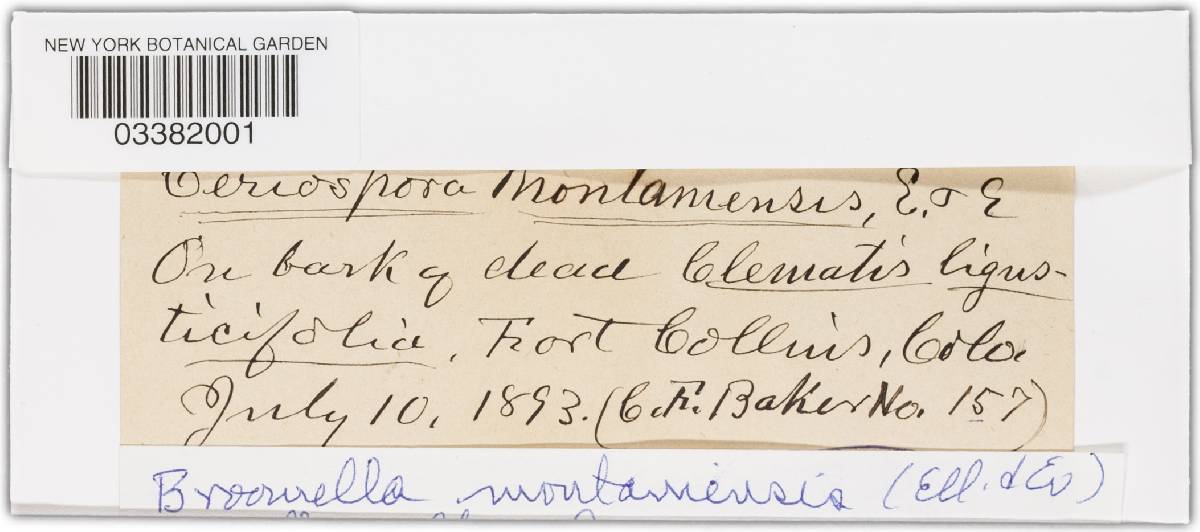 NEW YORK BOTANICAL GARDEN
03382001
Ceriospora Montaniensis, E. & E
On bark of dead Clematis ligus-
ticifolia, Fort Collins, Colo
July 10, 1893. (C. F. Baker No. 157)
Broomella montaniensis (Ell. & Ev)